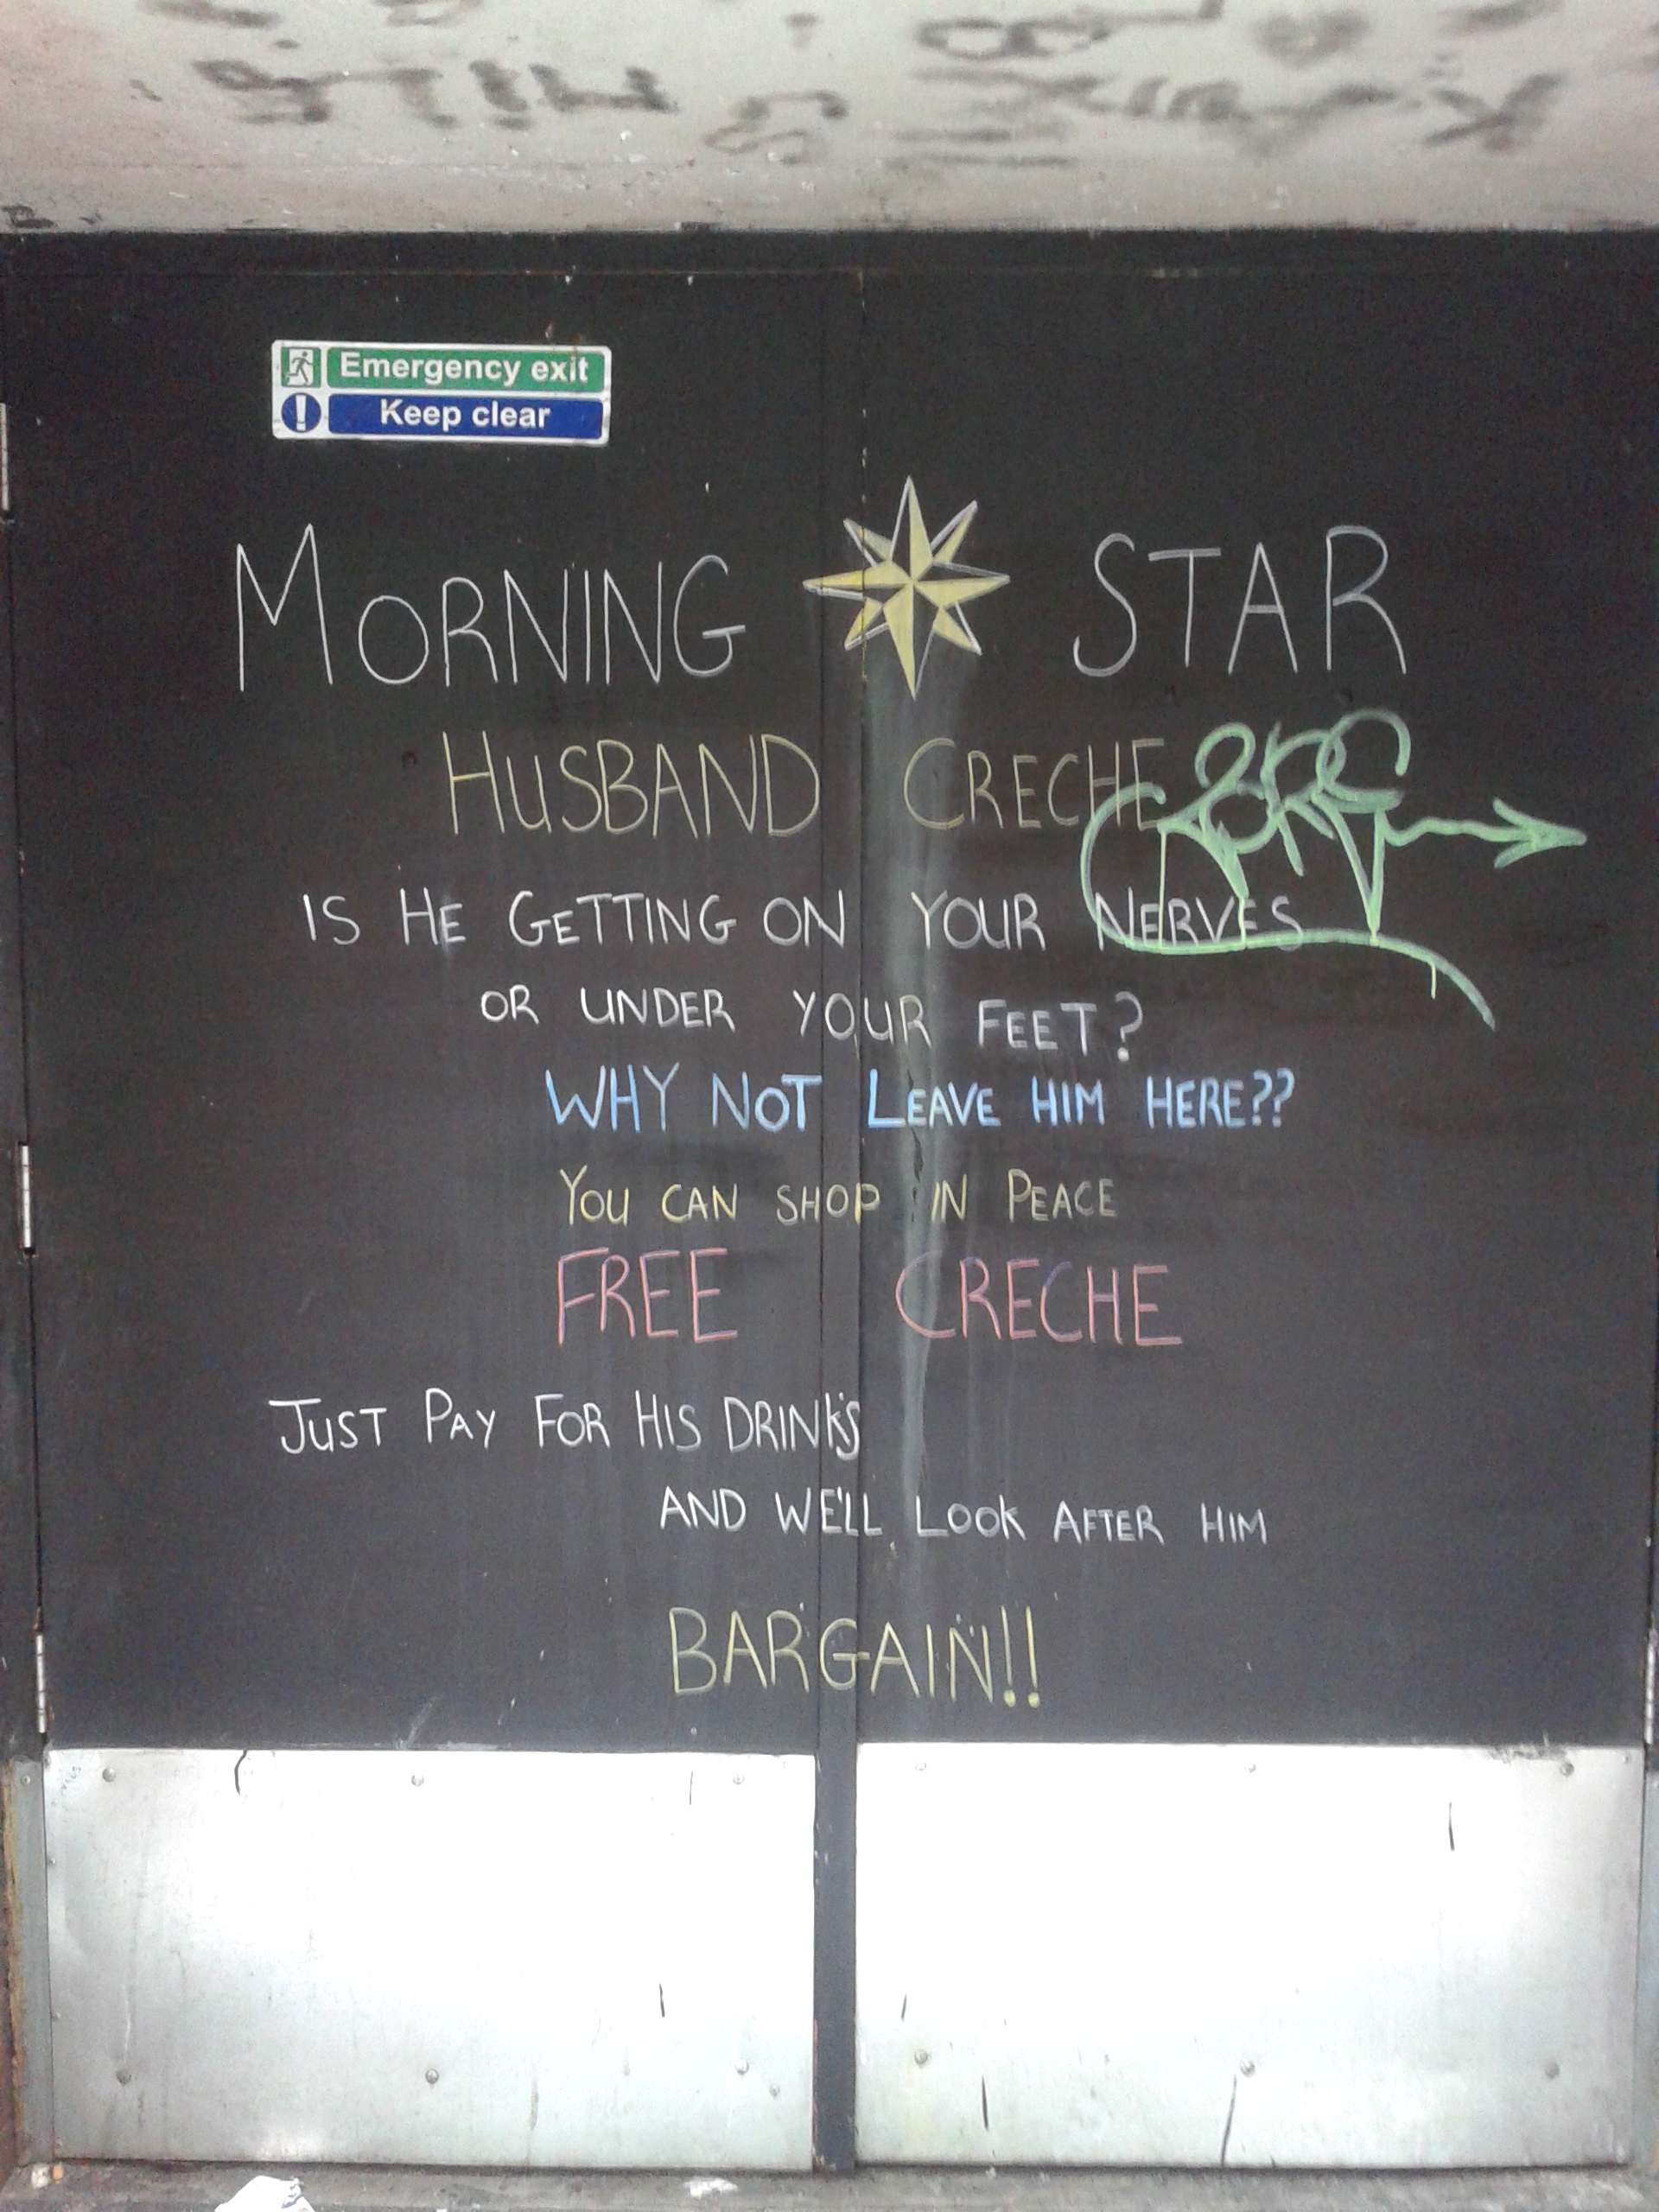 Emergency exit
Keep clear
MORNING STAR
HUSBAND CRECHE
IS HE GETTING ON YOUR NERVES
OR UNDER YOUR FEET?
WHY NOT LEAVE HIM HERE??
YOU CAN SHOP IN PEACE
FREE CRECHE
JUST PAY FOR HIS DRINKS
AND WE'LL LOOK AFTER HIM
BARGAIN!!